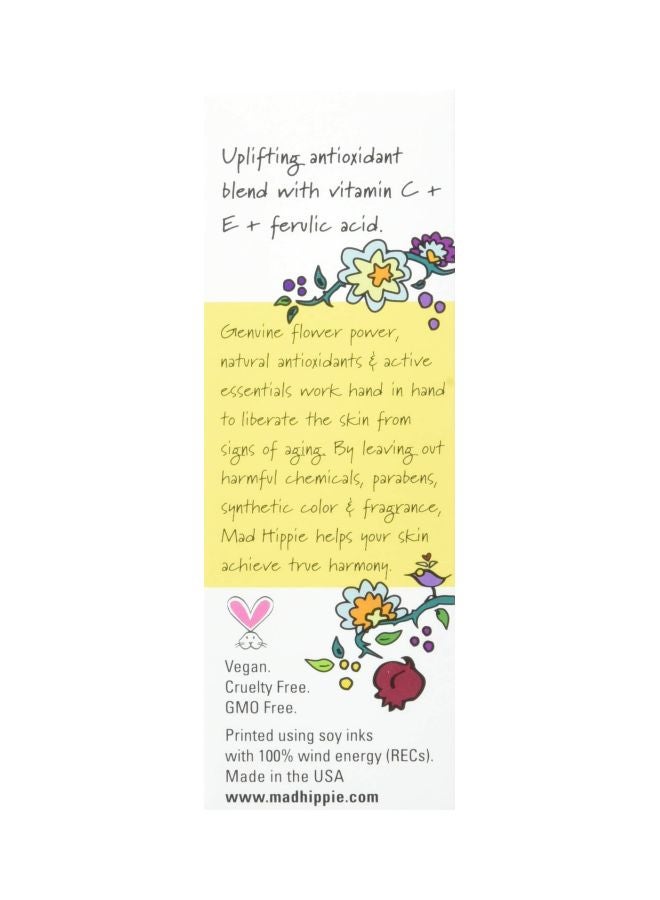 Uplifting antioxidant
blend with vitamin C +
E + ferulic acid.
Genuine flower power,
natural antioxidants & active
essentials work hand in hand
to liberate the skin from
signs of aging. By leaving out
harmful chemicals, parabens,
synthetic color & fragrance,
Mad Hippie helps your skin
achieve true harmony.
Vegan.
Cruelty Free.
GMO Free.
Printed using soy inks
with 100% wind energy (RECs).
Made in the USA
www.madhippie.com